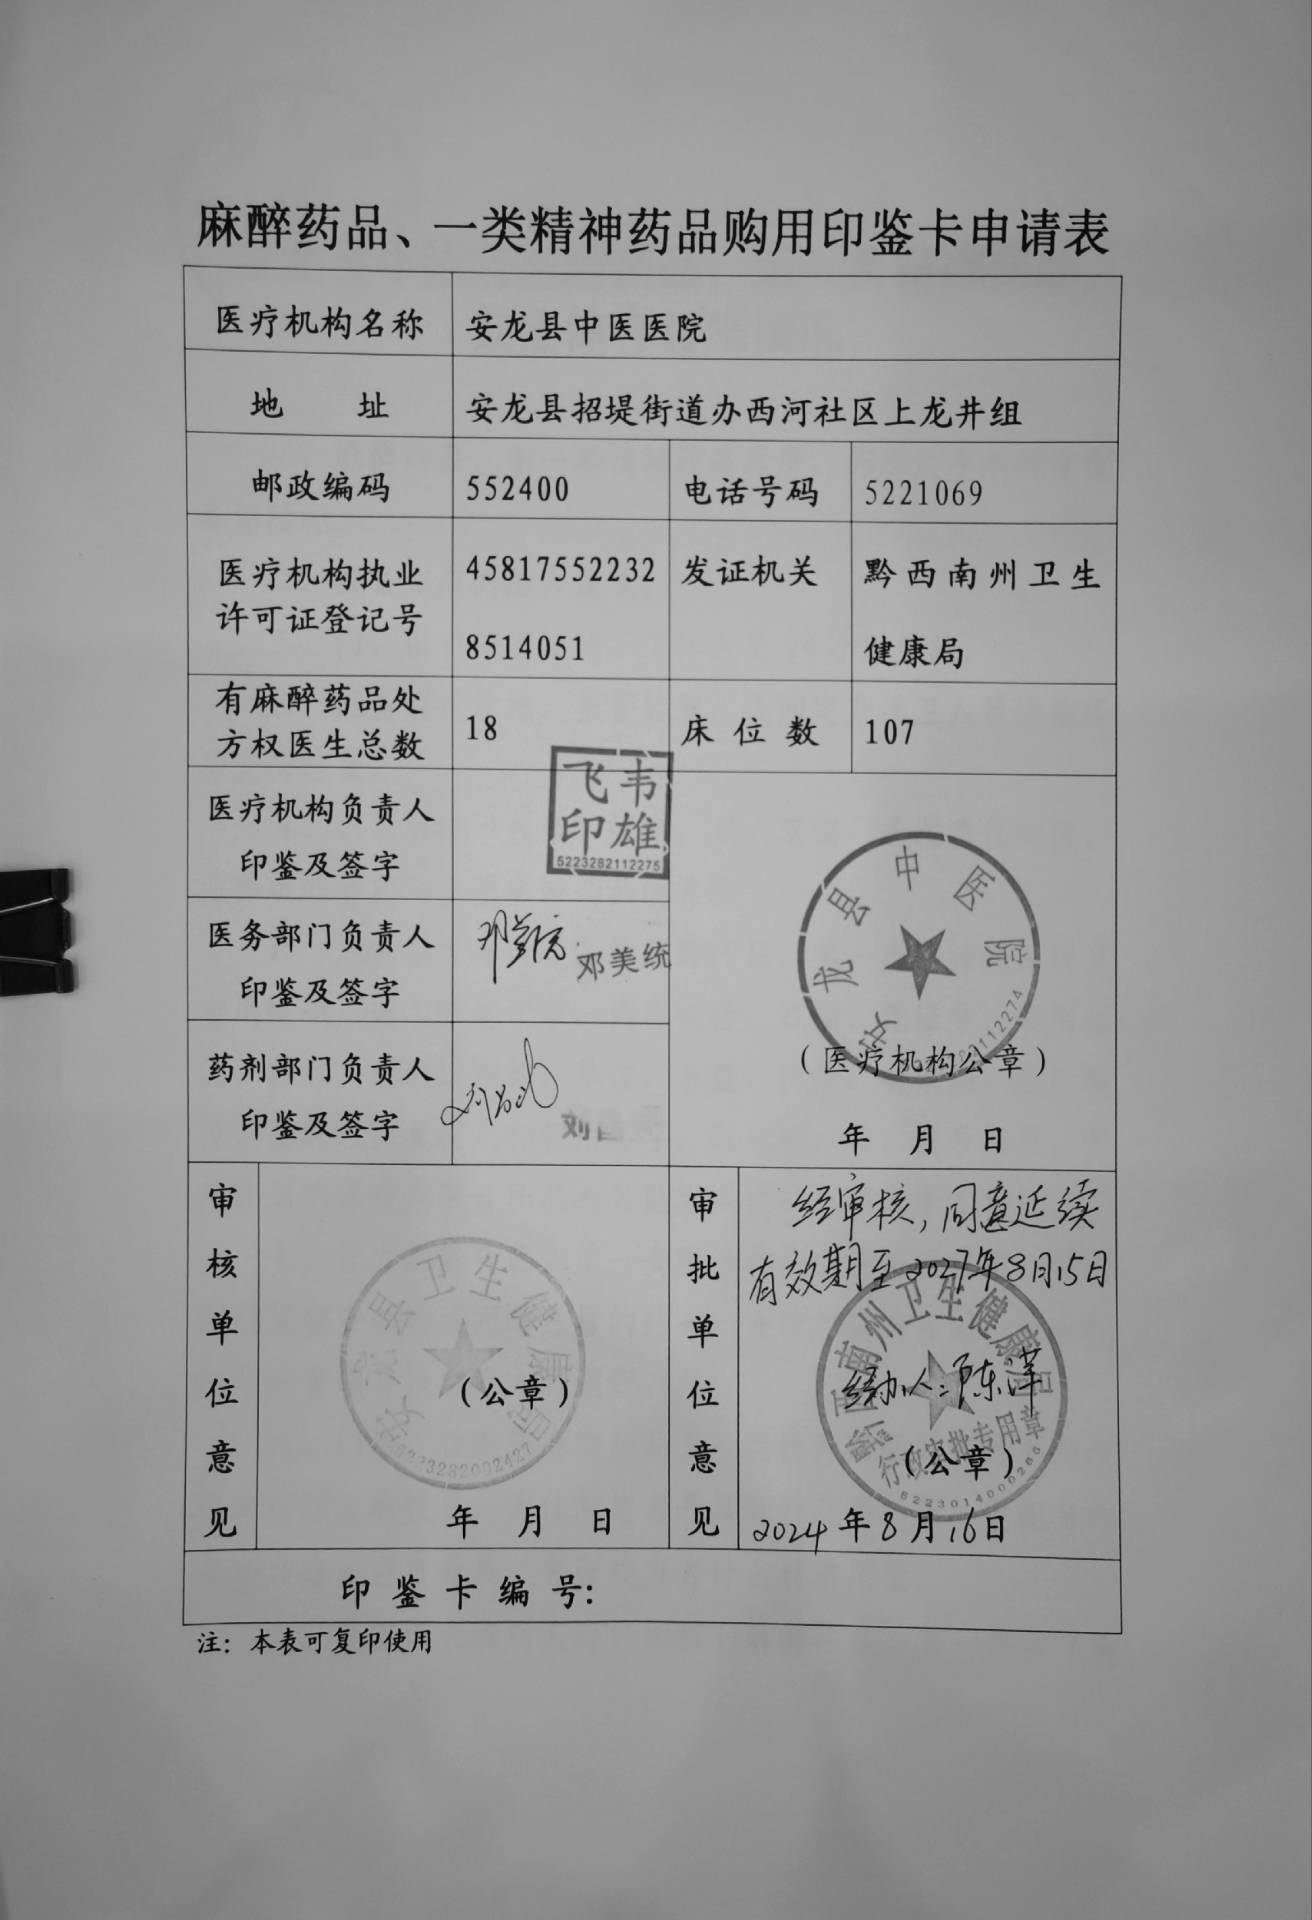 麻醉药品、一类精神药品购用印鉴卡申请表
医疗机构名称 安龙县中医医院
地 址 安龙县招堤街道办西河社区上龙井组
邮政编码 552400 电话号码 5221069
医疗机构执业 45817552232 发证机关 黔西南州卫生
许可证登记号
8514051 健康局
有麻醉药品处
方权医生总数 18 床位数 107
医疗机构负责人
印鉴及签字
飞韦
印雄
5223282112275
医务部门负责人
印鉴及签字
邓美统
邓美统
药剂部门负责人
印鉴及签字
刘昌
安龙县中医院
(医疗机构公章)
年 月 日
审核单位意见
安龙县卫生健康局
5223282002427
(公章)
年 月 日
审批单位意见
经审核,同意延续
有效期至2027年8月15日
黔西南州卫生健康局
经办人:陈洋
行政审批专用章
(公章)
5223014000266
2024年8月16日
印鉴卡编号:
注:本表可复印使用